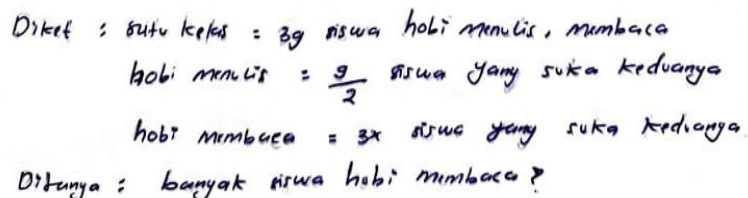 Diket : satu kelas = 39 siswa hobi menulis, membaca
hobi menulis = 9/2 siswa yang suka keduanya
hobi membaca = 3x siswa yang suka keduanya
Ditanya : banyak siswa hobi membaca ?